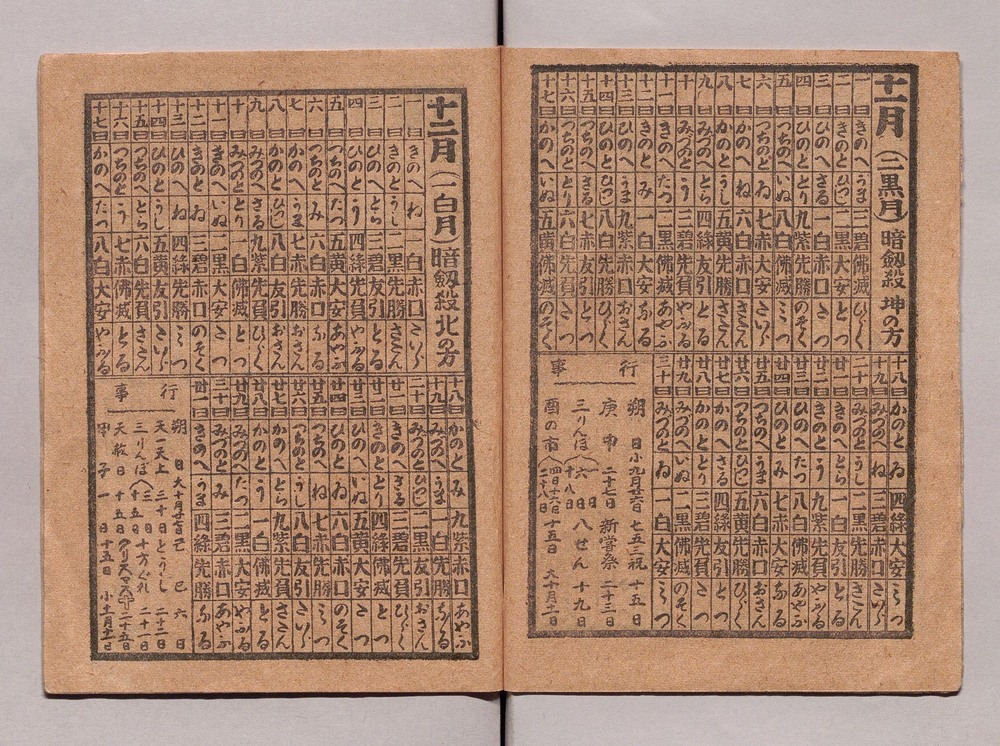 十一月(二黒月)暗劔殺 坤の方
一日 きのへ うま 三碧 佛滅 ひらく
二日 きのと ひつじ 二黒 大安 とつ
三日 ひのへ さる 一白 赤口 たつ
四日 ひのと とり 九紫 先勝 のそく
五日 つちのへ いぬ 八白 佛滅 みつ
六日 つちのと ゐ 七赤 大安 たいら
七日 かのへ ね 六白 赤口 さたん
八日 かのと うし 五黄 先勝 さたん
九日 みづのへ とら 四緑 友引 とる
十日 みづのと う 三碧 先負 やふる
十一日 きのへ たつ 二黒 佛滅 あやふ
十二日 きのと み 一白 大安 なる
十三日 ひのへ うま 九紫 赤口 おさん
十四日 ひのと ひつじ 八白 先勝 ひらく
十五日 つちのへ さる 七赤 友引 とつ
十六日 つちのと とり 六白 先負 たつ
十七日 かのへ いぬ 五黄 佛滅 のそく
十八日 かのと ゐ 四緑 大安 みつ
十九日 みづのへ ね 三碧 赤口 たいら
二十日 みづのと うし 二黒 先勝 さたん
廿一日 きのへ とら 一白 友引 とる
廿二日 きのと う 九紫 先負 やふる
廿三日 ひのへ たつ 八白 佛滅 あやふ
廿四日 ひのと み 七赤 大安 なる
廿五日 つちのへ うま 六白 赤口 おさん
廿六日 つちのと ひつじ 五黄 先勝 ひらく
廿七日 かのへ さる 四緑 友引 とつ
廿八日 かのと とり 三碧 先負 たつ
廿九日 みづのへ いぬ 二黒 佛滅 のそく
三十日 みづのと ゐ 一白 大安 みつ
行事
朔日 小九月廿六日 七五三祝 十五日
庚申 二十七日 新嘗祭 二十三日
三りんぼ(六日 十八日 八せん 十九日
酉の市(四日十六日 二十八日 十五日 大十月十一日
十二月(一白月)暗劔殺北の方
一日 きのへ ね 一白 赤口 たいら
二日 きのと うし 二黒 先勝 さたん
三日 ひのへ とら 三碧 友引 とる
四日 ひのと う 四緑 先負 やふる
五日 つちのへ たつ 五黄 大安 あやふ
六日 つちのと み 六白 赤口 なる
七日 かのへ うま 七赤 先勝 おさん
八日 かのと ひつじ 八白 友引 おさん
九日 みづのへ さる 九紫 先負 ひらく
十日 みづのと とり 一白 佛滅 とつ
十一日 きのへ いぬ 二黒 大安 たつ
十二日 きのと ゐ 三碧 赤口 のそく
十三日 ひのへ ね 四緑 先勝 みつ
十四日 ひのと うし 五黄 友引 たいら
十五日 つちのへ とら 六白 先負 さたん
十六日 つちのと う 七赤 佛滅 とる
十七日 かのへ たつ 八白 大安 やふる
十八日 かのと み 九紫 赤口 あやふ
十九日 みづのへ うま 一白 先勝 なる
二十日 みづのと ひつじ 二黒 友引 おさん
廿一日 きのへ さる 三碧 先負 ひらく
廿二日 きのと とり 四緑 佛滅 とつ
廿三日 ひのへ いぬ 五黄 大安 たつ
廿四日 ひのと ゐ 六白 赤口 のそく
廿五日 つちのへ ね 七赤 先勝 みつ
廿六日 つちのと うし 八白 友引 たいら
廿七日 かのへ とら 九紫 先負 さたん
廿八日 かのと う 一白 佛滅 とる
廿九日 みづのへ たつ 二黒 大安 やふる
三十日 みづのと み 三碧 赤口 あやふ
卅一日 きのへ うま 四緑 先勝 なる
行事
朔日 大十月廿七日 己巳 六日
天一天上 三十日 とうじ 二十二日
三りんぼ(三日 十五日 十方ぐれ 二十一日
天赦日 十五日 クリスマス 二十五日
甲子 一日 十五日 小十一月十一日